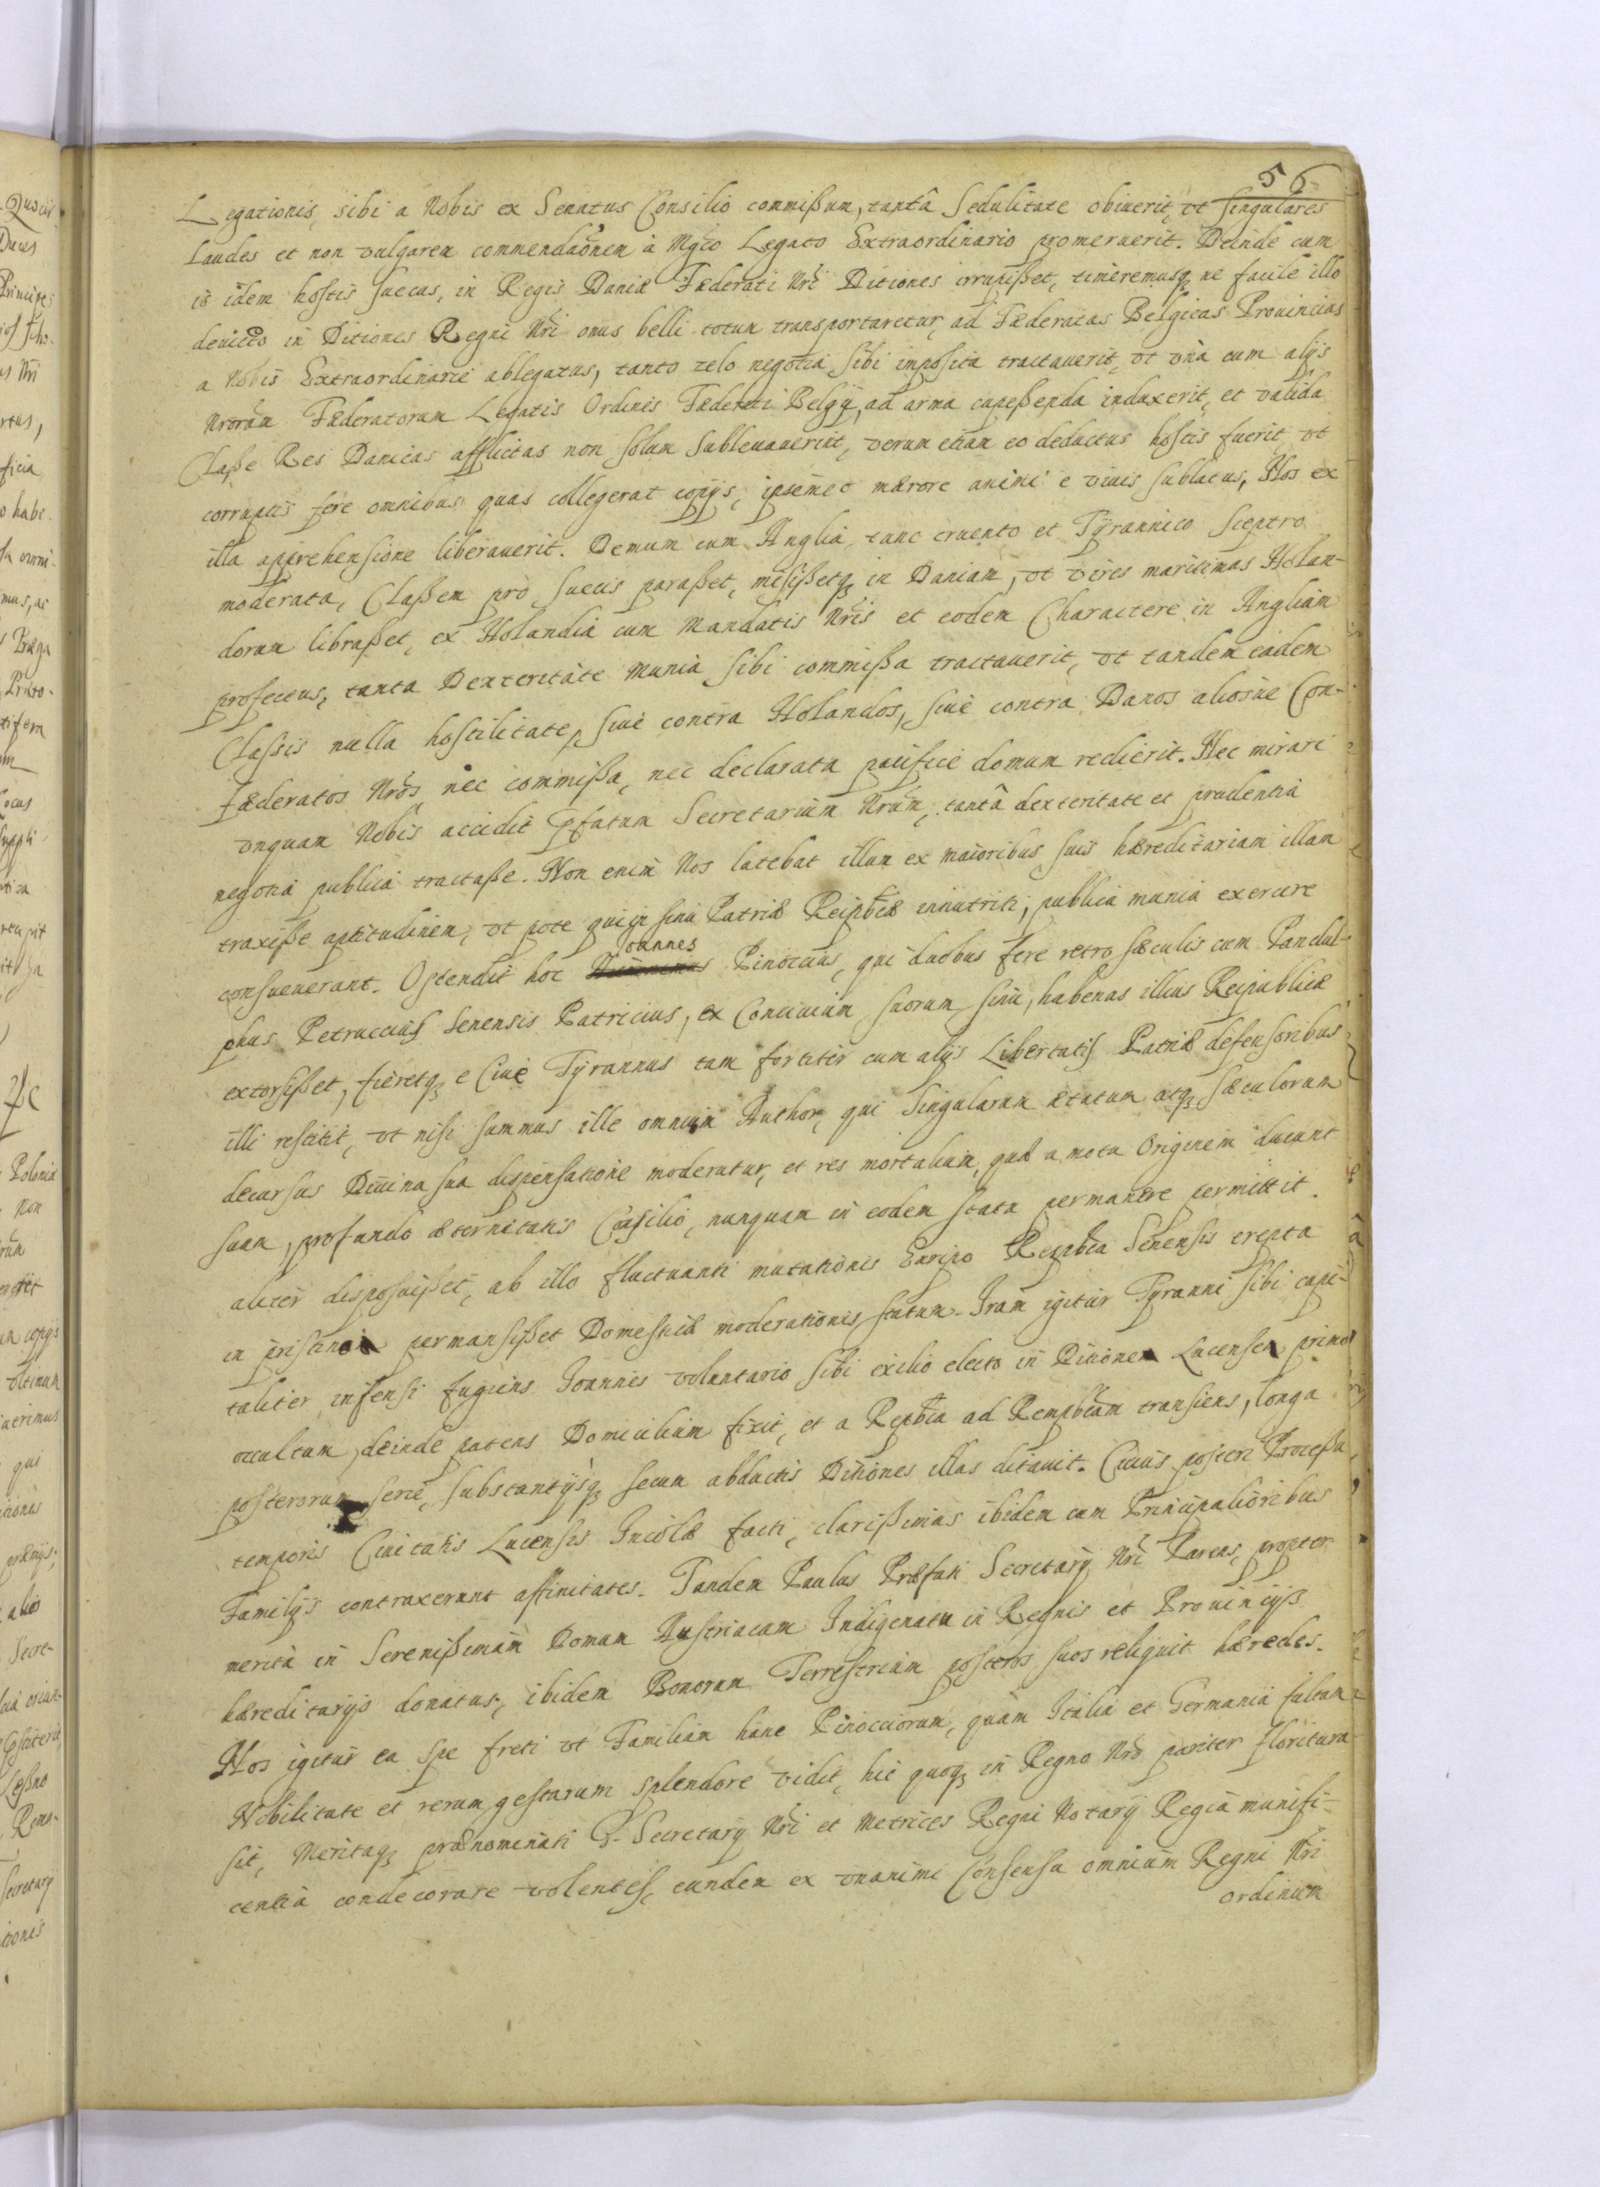 56
Legationis, sibi a Nobis ex Senatus Consilio commißum, tantâ Sedulitate obiuerit, vt singulares
laudes et non vulgarem commendaõnem à Mgco Legato Extraordinario promeruerit. Deinde cum
is idem hostis Suecus, in Regis Daniæ Fæderati Nri Ditiones irrupißet, timeremusq ne facile illo
deuicto in Ditiones Regni Nri onus belli totum transportaretur, ad Fæderatas Belgicas Prouincias
a Nobis Extraordinarie ablegatus, tanto zelo negotia sibi imposita tractauerit, vt vna cum alijs
Nrorum Fæderatorum Legatis Ordines Fæderati Belgij, ad arma capeßenda induxerit, et valida
Claße Res Danicas afflictas non solum subleuauerint, verum etiam eo deductus hostis fuerit, vt
corruptis fere omnibus quas collegerat copijs, ipsemet mærore animi e viuis sublatus, Nos ex
illa apprehensione liberauerit. Demum cum Anglia, tunc cruento et Tyrannico Sceptro
moderata, Claßem pro Suecis paraßet, misißetq in Daniam, vt vires maritimas Holan-
dorum libraßet, ex Holandia cum Mandatis Nris et eodem Charactere in Angliam
profectus, tanta Dexteritate munia sibi commißa tractauerit, vt tandem eadem
Classis nulla hostilitate, siue contra Holandos, siue contra Danos aliosue Con-
fæderatos Nros, nec commißa, nec declarata pacifice domum redierit. Nec mirari
vnquam Nobis accidit pfatum Secretarium Nrum, tantâ dexteritate et prudentia
negotia publica tractaße. Non enim Nos latebat illum ex maioribus suis hæreditariam illam
traxiße aptitudinem, vt pote qui in sinu Patriæ Reipbcæ innutriti, publica munia exercere
consueuerant. Ostendit hoc Joannes Pinoccius, qui duobus fere retro sæculis cum Pandul-
phus Petruccius Senensis Patricius, ex Conciuium suorum sinu, habenas illius Reipublicæ
extorsißet, fieretq e Ciue Tyrannus tam fortiter cum alijs Libertatis Patriæ defensoribus
illi restitit, vt nisi summus ille omnium Author, qui Singularum ætatum atq sæculorum
decursus Diuina sua dispensatione moderatur, et res mortalium, quæ a motu Originem ducunt
suam, profundo æternitatis Consilio, nunquam in eodem statu permanere permittit
aliter disposuißet, ab illo fluctuanti mutationis Euripo Respbca Senensis erepta
in pristino permansißet Domesticæ moderationis statum. Iram igitur Tyranni sibi capi-
taliter infensi fugiens Joannes voluntario sibi exilio electo in Ditionem Lucensem primo
occultum, deinde patens Domicilium fixit, et a Repbca ad Rempbcam transiens, longa
posterorum serie, substantijsq secum abductis Ditiones illas ditauit. Cuius posteri Proceßu
temporis Ciuitatis Lucensis Incolæ facti, clarißimas ibidem cum Principalioribus
Familijs contraxerunt affinitates. Tandem Paulus Præfati Secretarij Nri Parens, propter
merita in Serenißimam Domum Austriacam Indigenatu in Regnis et Prouincijs
hæreditarijs donatus, ibidem Bonorum Terrestrium posteros suos reliquit hæredes.
Nos igitur ea spe freti vt Familiam hanc Pinocciorum, quam Italia et Germania fultam
Nobilitate et rerum gestarum splendore vidit, hic quoq in Regno Nro pariter floritura
sit, Meritaq prænominati G. Secretarij Nri et Metrices Regni Notarij Regia munifi-
centia condecorare volentes, eundem ex vnanimi Consensu omnium Regni Nri
ordinum